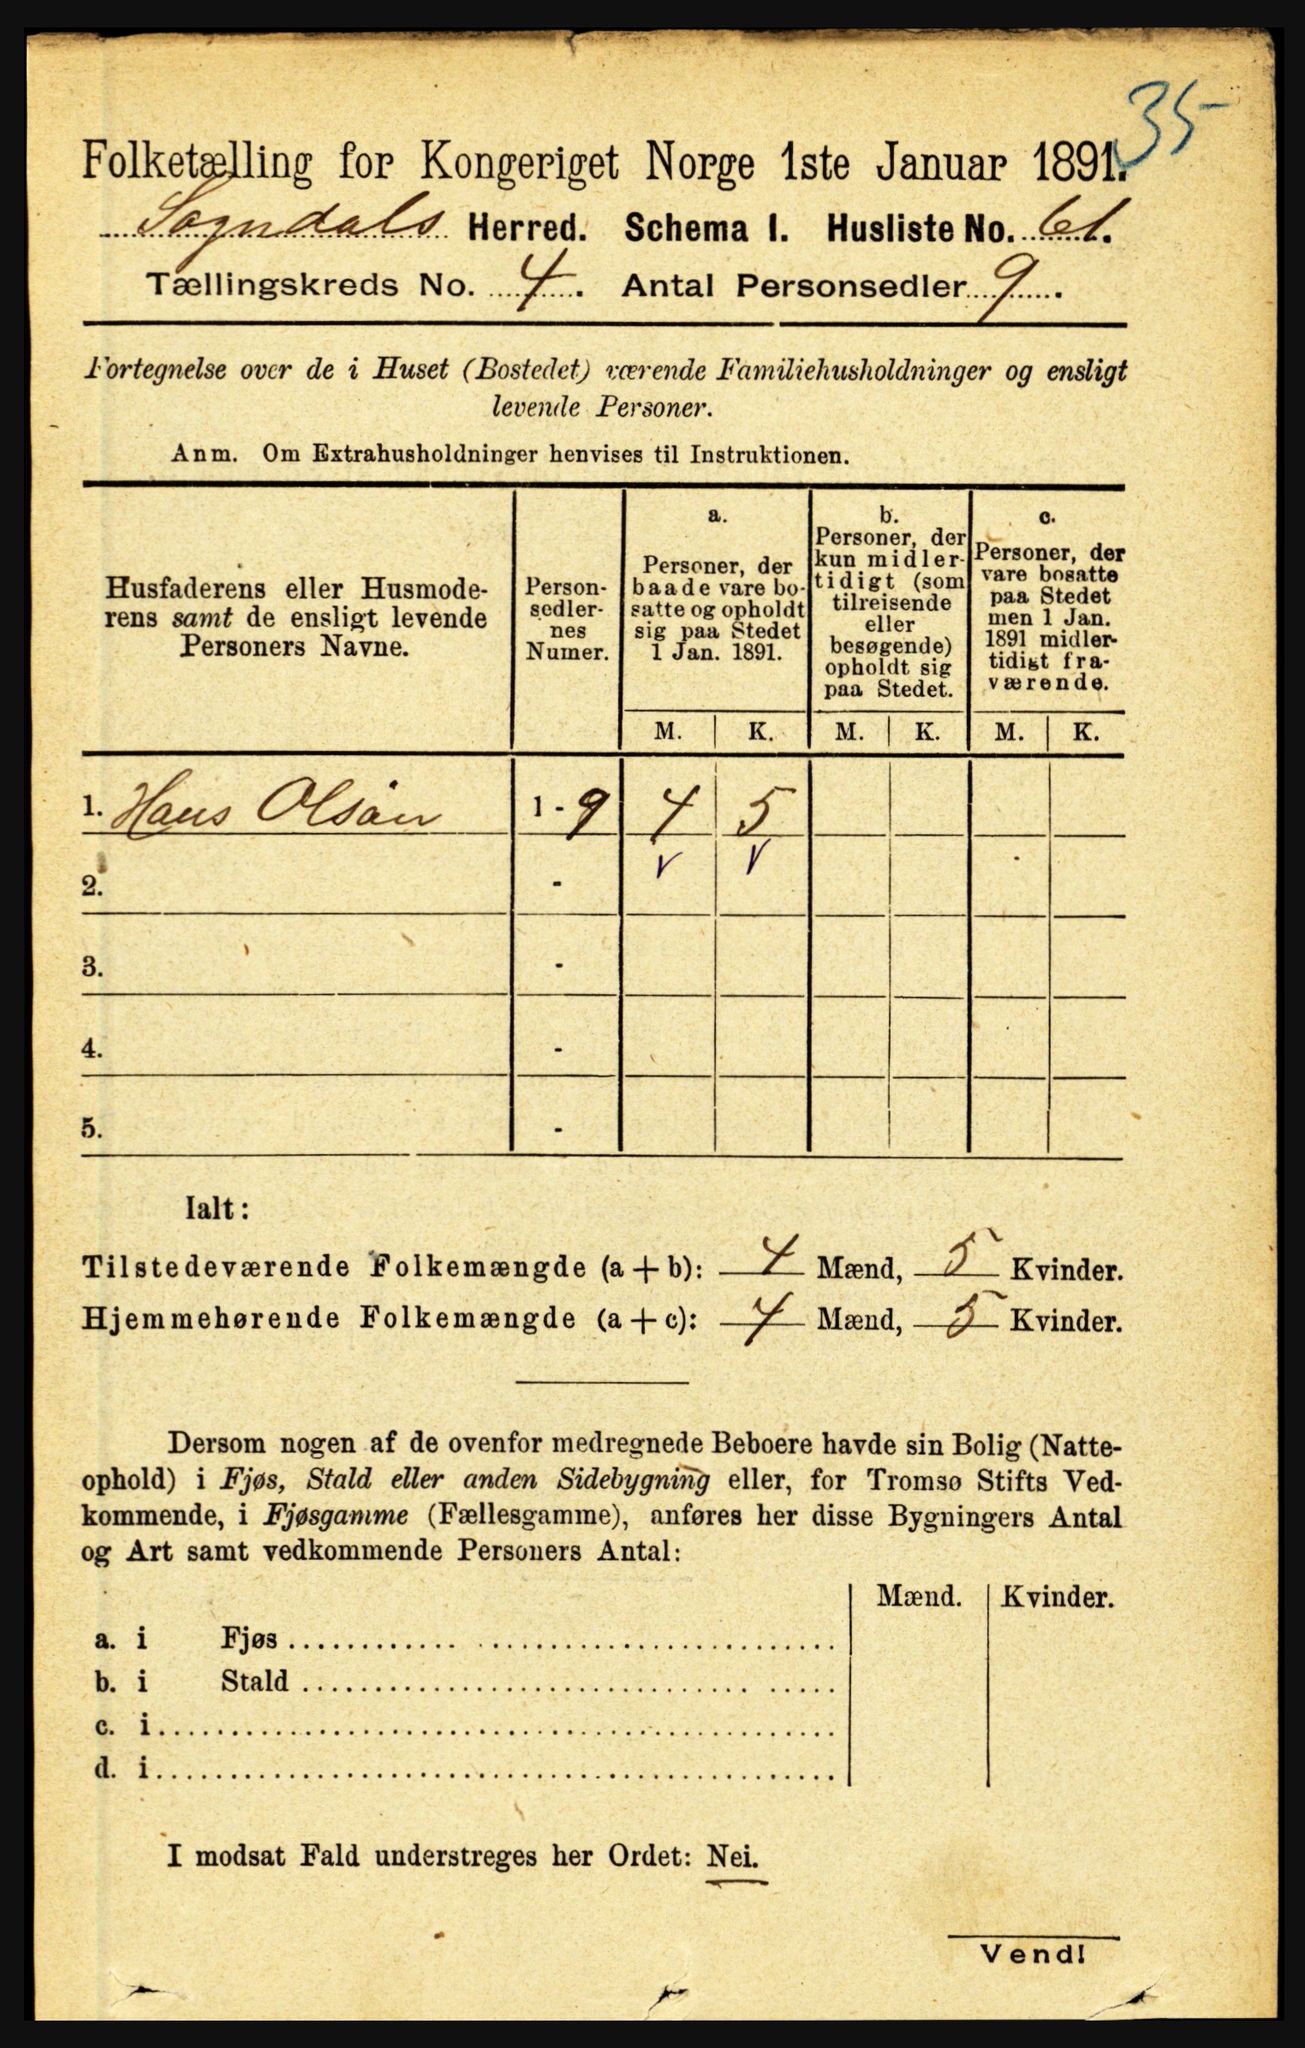 35
Folketælling for Kongeriget Norge 1ste Januar 1891.
Sogndals Herred. Schema I. Husliste No. 61.
Tællingskreds No. 4. Antal Personsedler 9.
Fortegnelse over de i Huset (Bostedet) værende Familiehusholdninger og ensligt
levende Personer.
Anm. Om Extrahusholdninger henvises til Instruktionen.
Husfaderens eller Husmode-
rens samt de ensligt levende
Personers Navne.
Person-
sedler-
nes
Numer.
a.
Personer, der
baade vare bo-
satte og opholdt
sig paa Stedet
1 Jan. 1891.
b.
Personer, der
kun midler-
tidigt (som
tilreisende
eller
besøgende)
opholdt sig
paa Stedet.
c.
Personer, der
vare bosatte
paa Stedet
men 1 Jan.
1891 midler-
tidigt fra-
værende.
M. K. M. K. M. K.
1. Hans Olsøn 1 - 9 4 5
2. -
3. -
4. -
5. -
Ialt:
Tilstedeværende Folkemængde (a + b): 4 Mænd, 5 Kvinder.
Hjemmehørende Folkemængde (a + c): 4 Mænd, 5 Kvinder.
Dersom nogen af de ovenfor medregnede Beboere havde sin Bolig (Natte-
ophold) i Fjøs, Stald eller anden Sidebygning eller, for Tromsø Stifts Ved-
kommende, i Fjøsgamme (Fællesgamme), anføres her disse Bygningers Antal
og Art samt vedkommende Personers Antal:
Mænd. Kvinder.
a. i Fjøs
b. i Stald
c. i
d. i
I modsat Fald understreges her Ordet: Nei.
Vend!